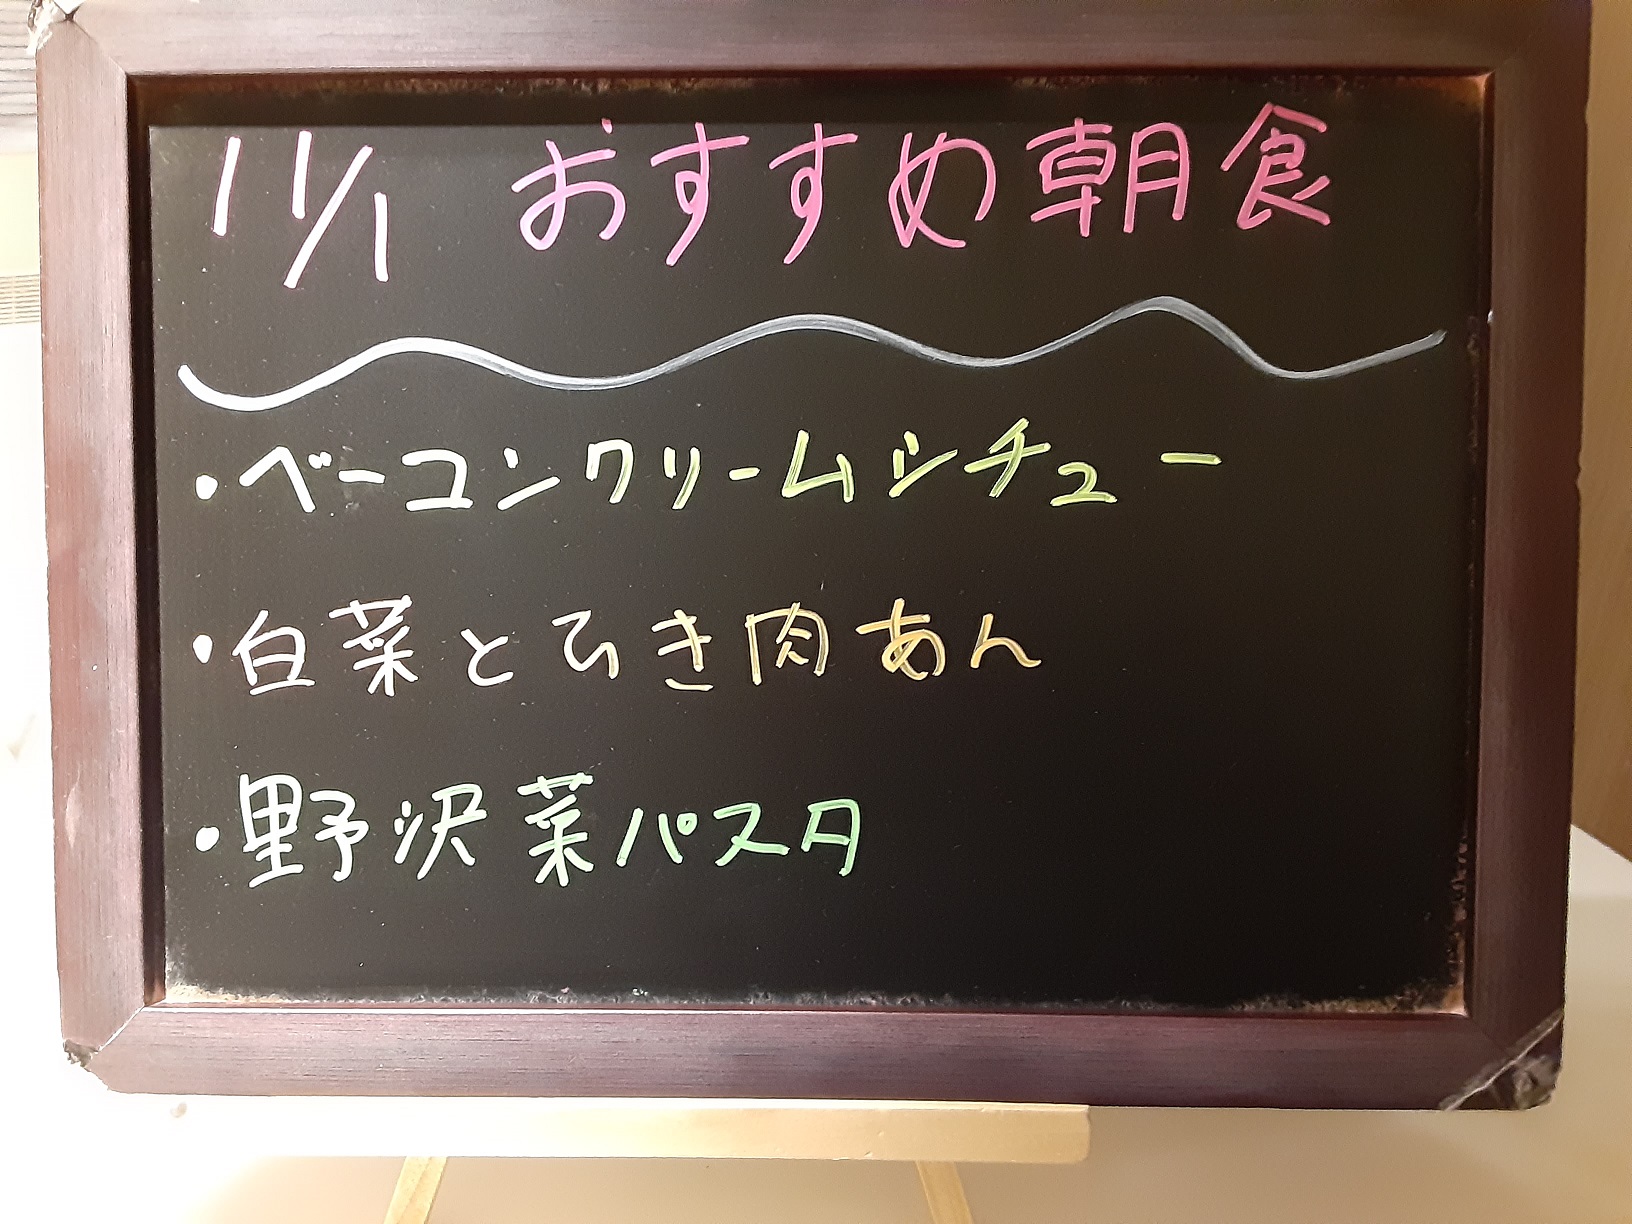 11/1 おすすめ朝食
・ベーコンクリームシチュー
・白菜とひき肉あん
・野沢菜パスタ